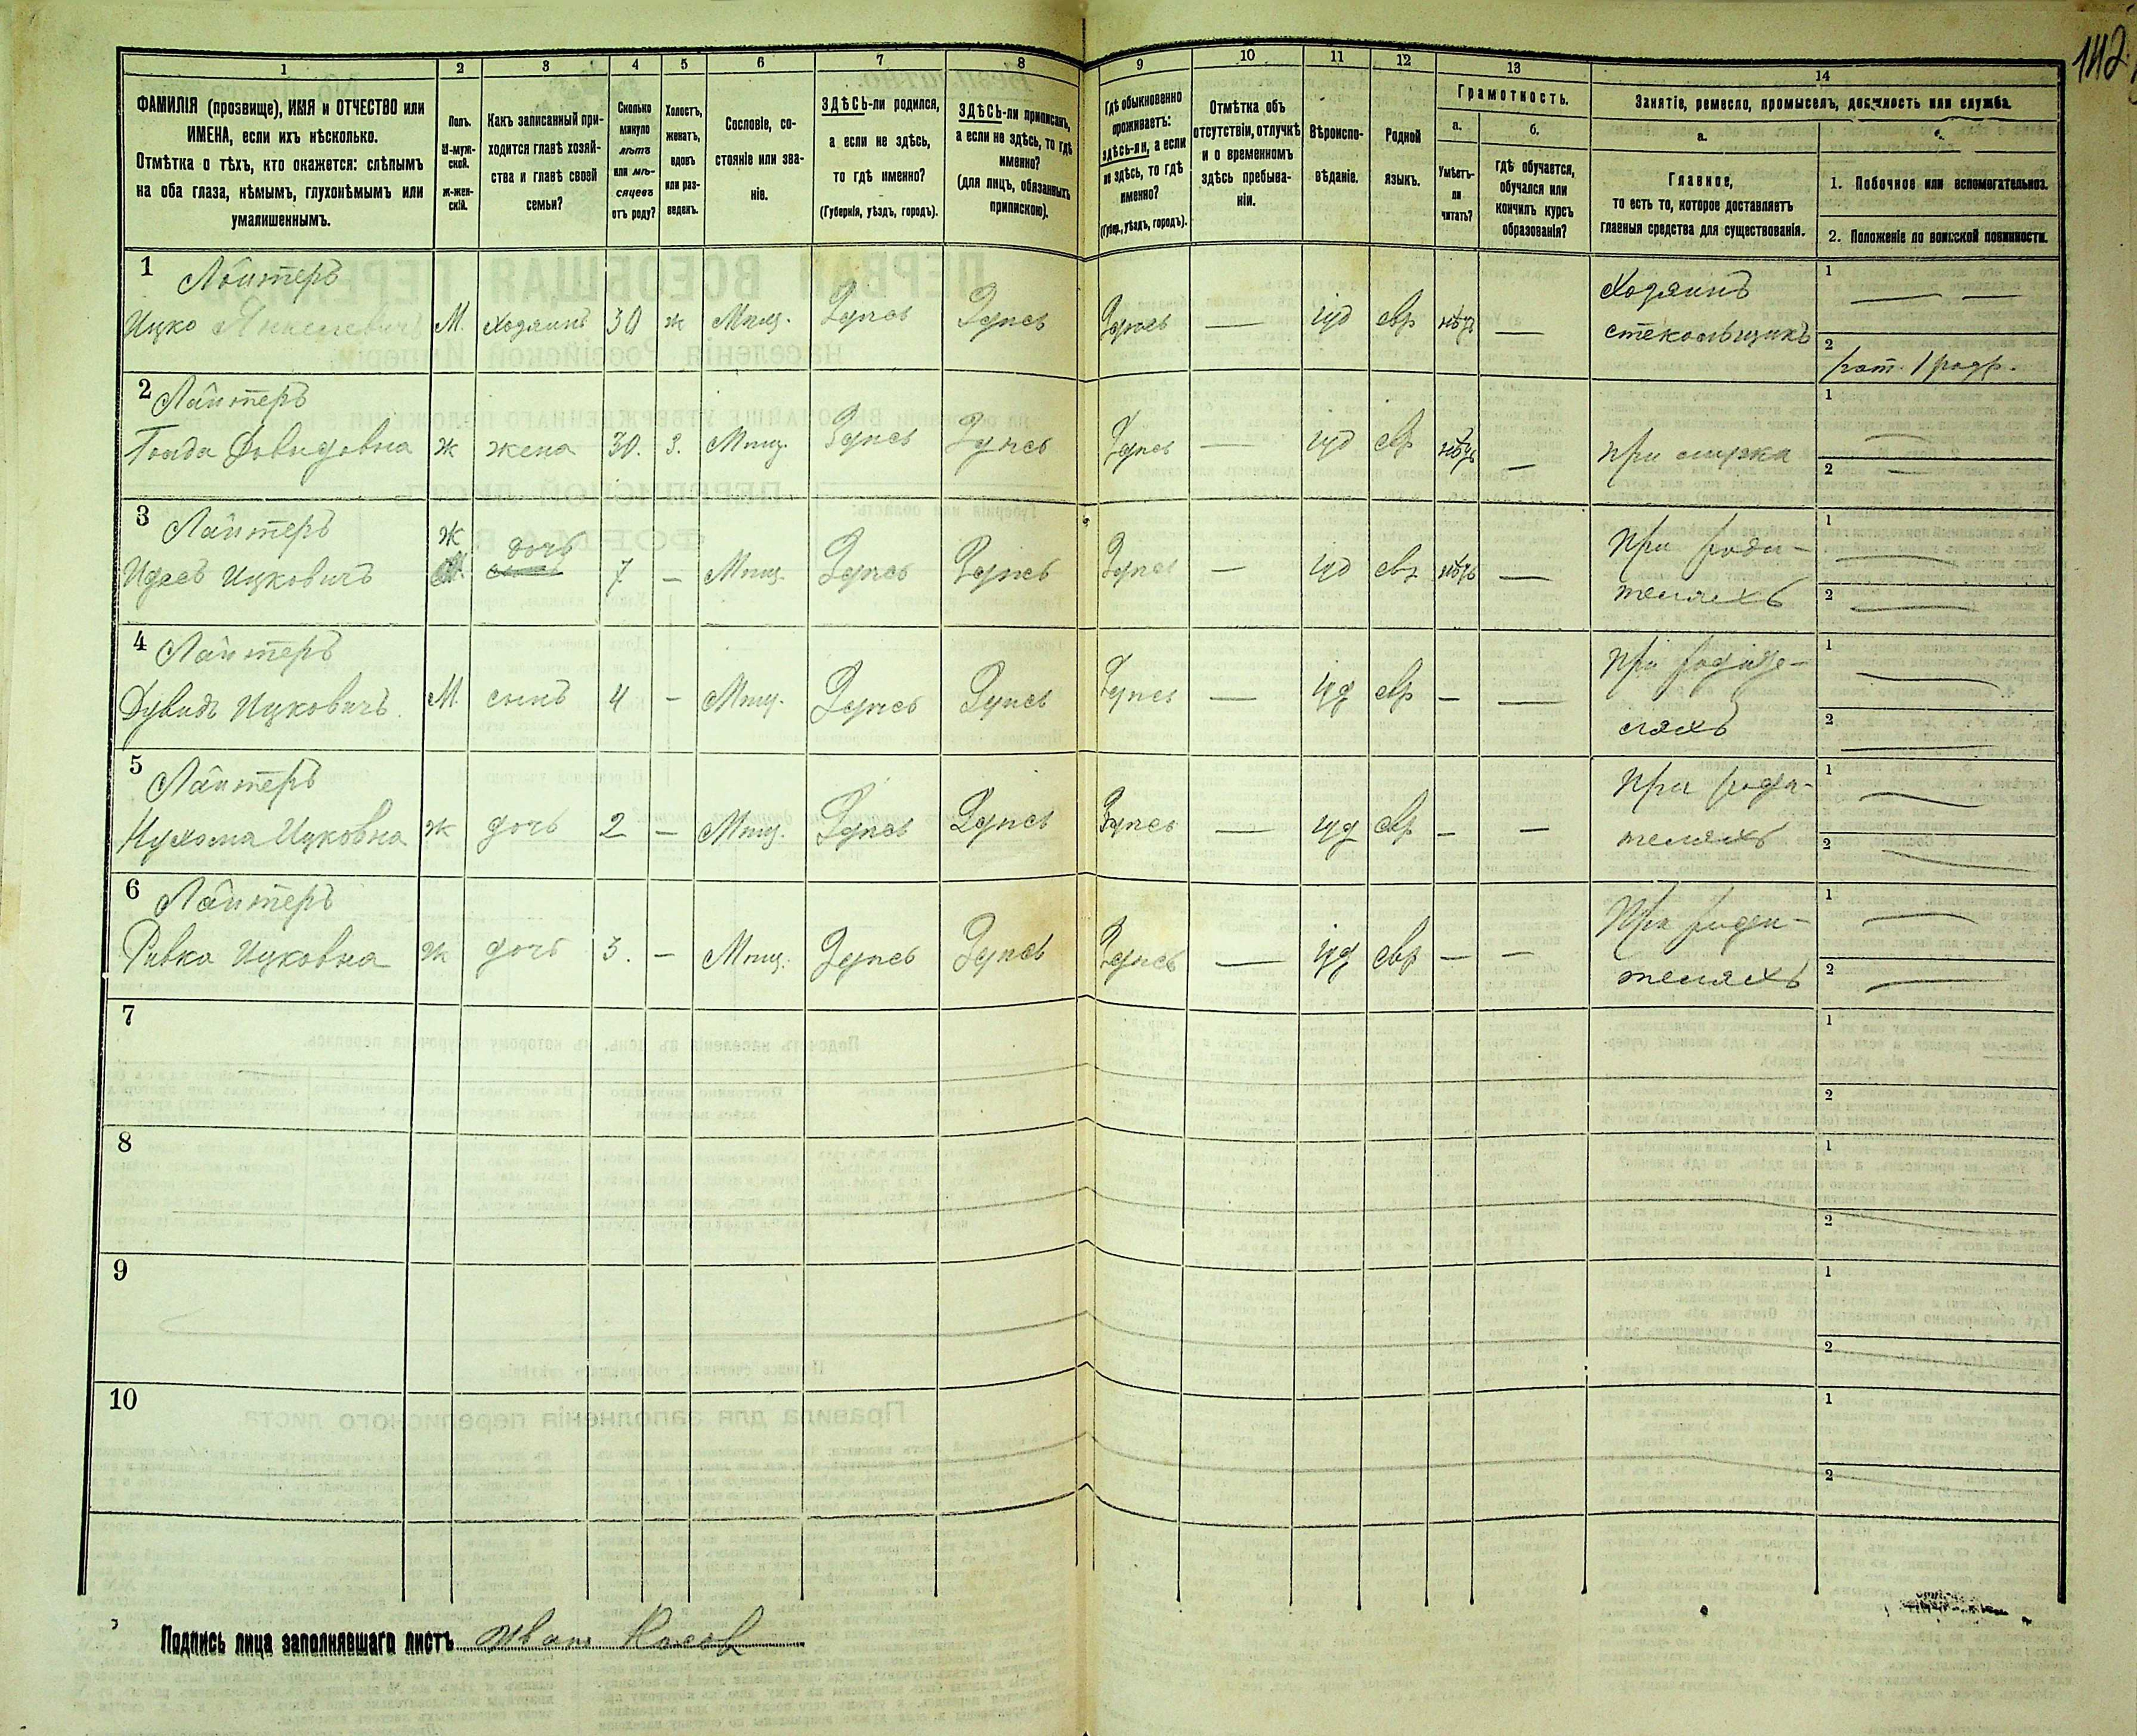 142
1 2 3 4 5 6 7 8 9 10 11 12 13 14
ФАМИЛІЯ (прозвище), ИМЯ и ОТЧЕСТВО или
ИМЕНА, если ихъ нѣсколько.
Отмѣтка о тѣхъ, кто окажется: слѣпымъ
на оба глаза, нѣмымъ, глухонѣмымъ или
умалишеннымъ.
Полъ.
М-муж-
ской.
Ж-жен-
скій.
Какъ записанный при-
ходится главѣ хозяй-
ства и главѣ своей
семьи?
Сколько
минуло
лѣтъ
или мѣ-
сяцевъ
отъ роду?
Холостъ,
женатъ,
вдовъ
или раз-
веденъ.
Сословіе, со-
стояніе или зва-
ніе.
ЗДѢСЬ-ли родился,
а если не здѣсь,
то гдѣ именно?
(Губернія, уѣздъ, городъ).
ЗДѢСЬ-ли приписанъ,
а если не здѣсь, то гдѣ
именно?
(для лицъ, обязанныхъ
припискою).
Гдѣ обыкновенно
проживаетъ:
здѣсь-ли, а если
не здѣсь, то гдѣ
именно?
(Губер., уѣздъ, городъ).
Отмѣтка объ
отсутствіи, отлучкѣ
и о временномъ
здѣсь пребыва-
ніи.
Вѣроиспо-
вѣданіе.
Родной
языкъ.
Грамотность.
а.
Умѣетъ-
ли
читать?
б.
гдѣ обучается,
обучался или
кончилъ курсъ
образованія?
Занятіе, ремесло, промыселъ, должность или служба.
а.
Главное,
то есть то, которое доставляетъ
главныя средства для существованія.
1. Побочное или вспомогательное.
2. Положеніе по воинской повинности.
1 Лайтеръ Хозяинъ 1 — —
Ицко Янкелевичъ М. Хозяинъ 30 ж Мѣщ. Здѣсь Здѣсь Здѣсь — іуд евр нѣтъ — стекольщикъ
2 рат. 1 разр.
2 Лайтеръ 1 —
Голда Довидовна ж жена 30. з. Мѣщ. Здѣсь Здѣсь Здѣсь — іуд евр нѣтъ — при мужѣ 2 —
3 Лайтеръ ж дочь При роди- 1 —
Идесъ Ицковичъ М. сынъ 7 — Мѣщ. Здѣсь Здѣсь Здѣсь — іуд евр нѣтъ — теляхъ 2 —
4 Лайтеръ При родите- 1 —
Дувидъ Ицковичъ. М. сынъ 4 — Мѣщ. Здѣсь Здѣсь Здѣсь — іуд евр — — ляхъ 2 —
5 Лайтеръ При роди- 1 —
Нухома Ицковна ж дочь 2 — Мѣщ. Здѣсь Здѣсь Здѣсь — іуд евр — — теляхъ 2 —
6 Лайтеръ При роди- 1 —
Ривка Ицковна ж дочь 3. — Мѣщ. Здѣсь Здѣсь Здѣсь — іуд евр — — теляхъ 2 —
7 1
2
8 1
2
9 1
2
10 1
2
Подпись лица заполнявшаго листъ Иван